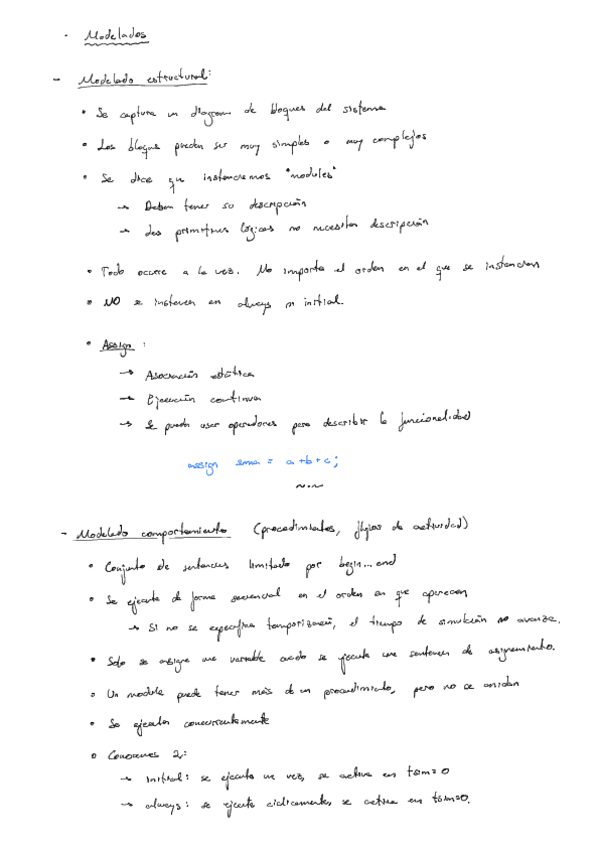 · Modelados
- Modelado estructural:
• Se captura un diagrama de bloques del sistema
• Los bloques pueden ser muy simples o muy complejos
• Se dice que instanciamos "modules"
→ Deben tener su descripción
→ Las primitivas lógicas no necesitan descripción
• Todo ocurre a la vez. No importa el orden en el que se instancian
• NO se instancian en always ni initial.
• Assign:
→ Asociación estática
→ Ejecución continua
→ Se pueden usar operadores para describir la funcionalidad
assign suma = a+b+c;
- Modelado comportamiento (procedimientos, flujos de actividad)
• Conjunto de sentencias limitado por begin...end
• Se ejecuta de forma secuencial en el orden en que aparecen
→ Si no se especifica temporización, el tiempo de simulación no avanza.
• Solo se asigna una variable cuando se ejecuta una sentencia de asignamiento.
• Un module puede tener más de un procedimiento, pero no se anidan
• Se ejecutan concurrentemente
• Conocemos 2:
→ initial: se ejecuta una vez, se activa en tsim=0
→ always: se ejecuta cíclicamente, se activa en tsim=0.